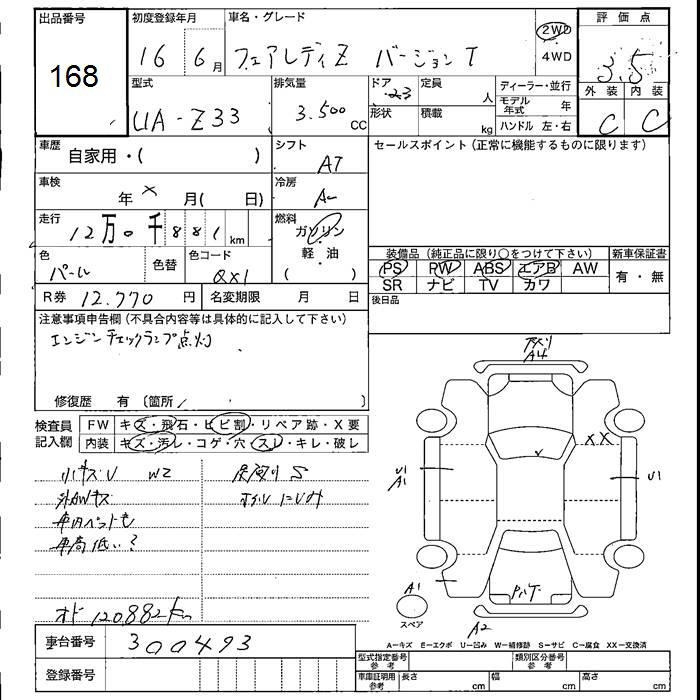 出品番号 初度登録年月 車名・グレード 2WD 評価点
168 16 6月 フェアレディZ バージョンT 4WD 3.5
型式 排気量 ドア 定員 ディーラー・並行 外装 内装
UA-Z33 3.500cc 23 人 モデル年式 年 C C
形状 積載 kg ハンドル 左・右
車歴 自家用・( ) シフト AT セールスポイント(正常に機能するものに限ります)
車検 年 × 月( 日) 冷房 A
走行 12万0千881km 燃料 ガソリン・軽油 ( )
装備品(純正品に限り○をつけて下さい) 新車保証書
色 パール 色替 色コード QX1 PS PW ABS エアB AW 有・無
SR ナビ TV カワ
R券 12.770円 名変期限 月 日 後日品
注意事項申告欄(不具合内容等は具体的に記入して下さい)
エンジンチェックランプ点灯
修復歴 有(箇所/ )
検査員記入欄 FW キズ・飛石・ヒビ割・リペア跡・X要
内装 キズ・汚レ・コゲ・穴・スレ・キレ・破レ
小キズU W2
外AWキズ
車高低い?
オド120882km
A4
XX
U1
A1
U1
A1
スペア
A2
A-キズ E-エクボ U-凹み W-補修跡 S-サビ C-腐食 XX-交換済
車台番号 300493
登録番号
型式指定番号 参考 類別区分番号 参考
車庫証明用 参考 長さ cm 幅 cm 高さ cm